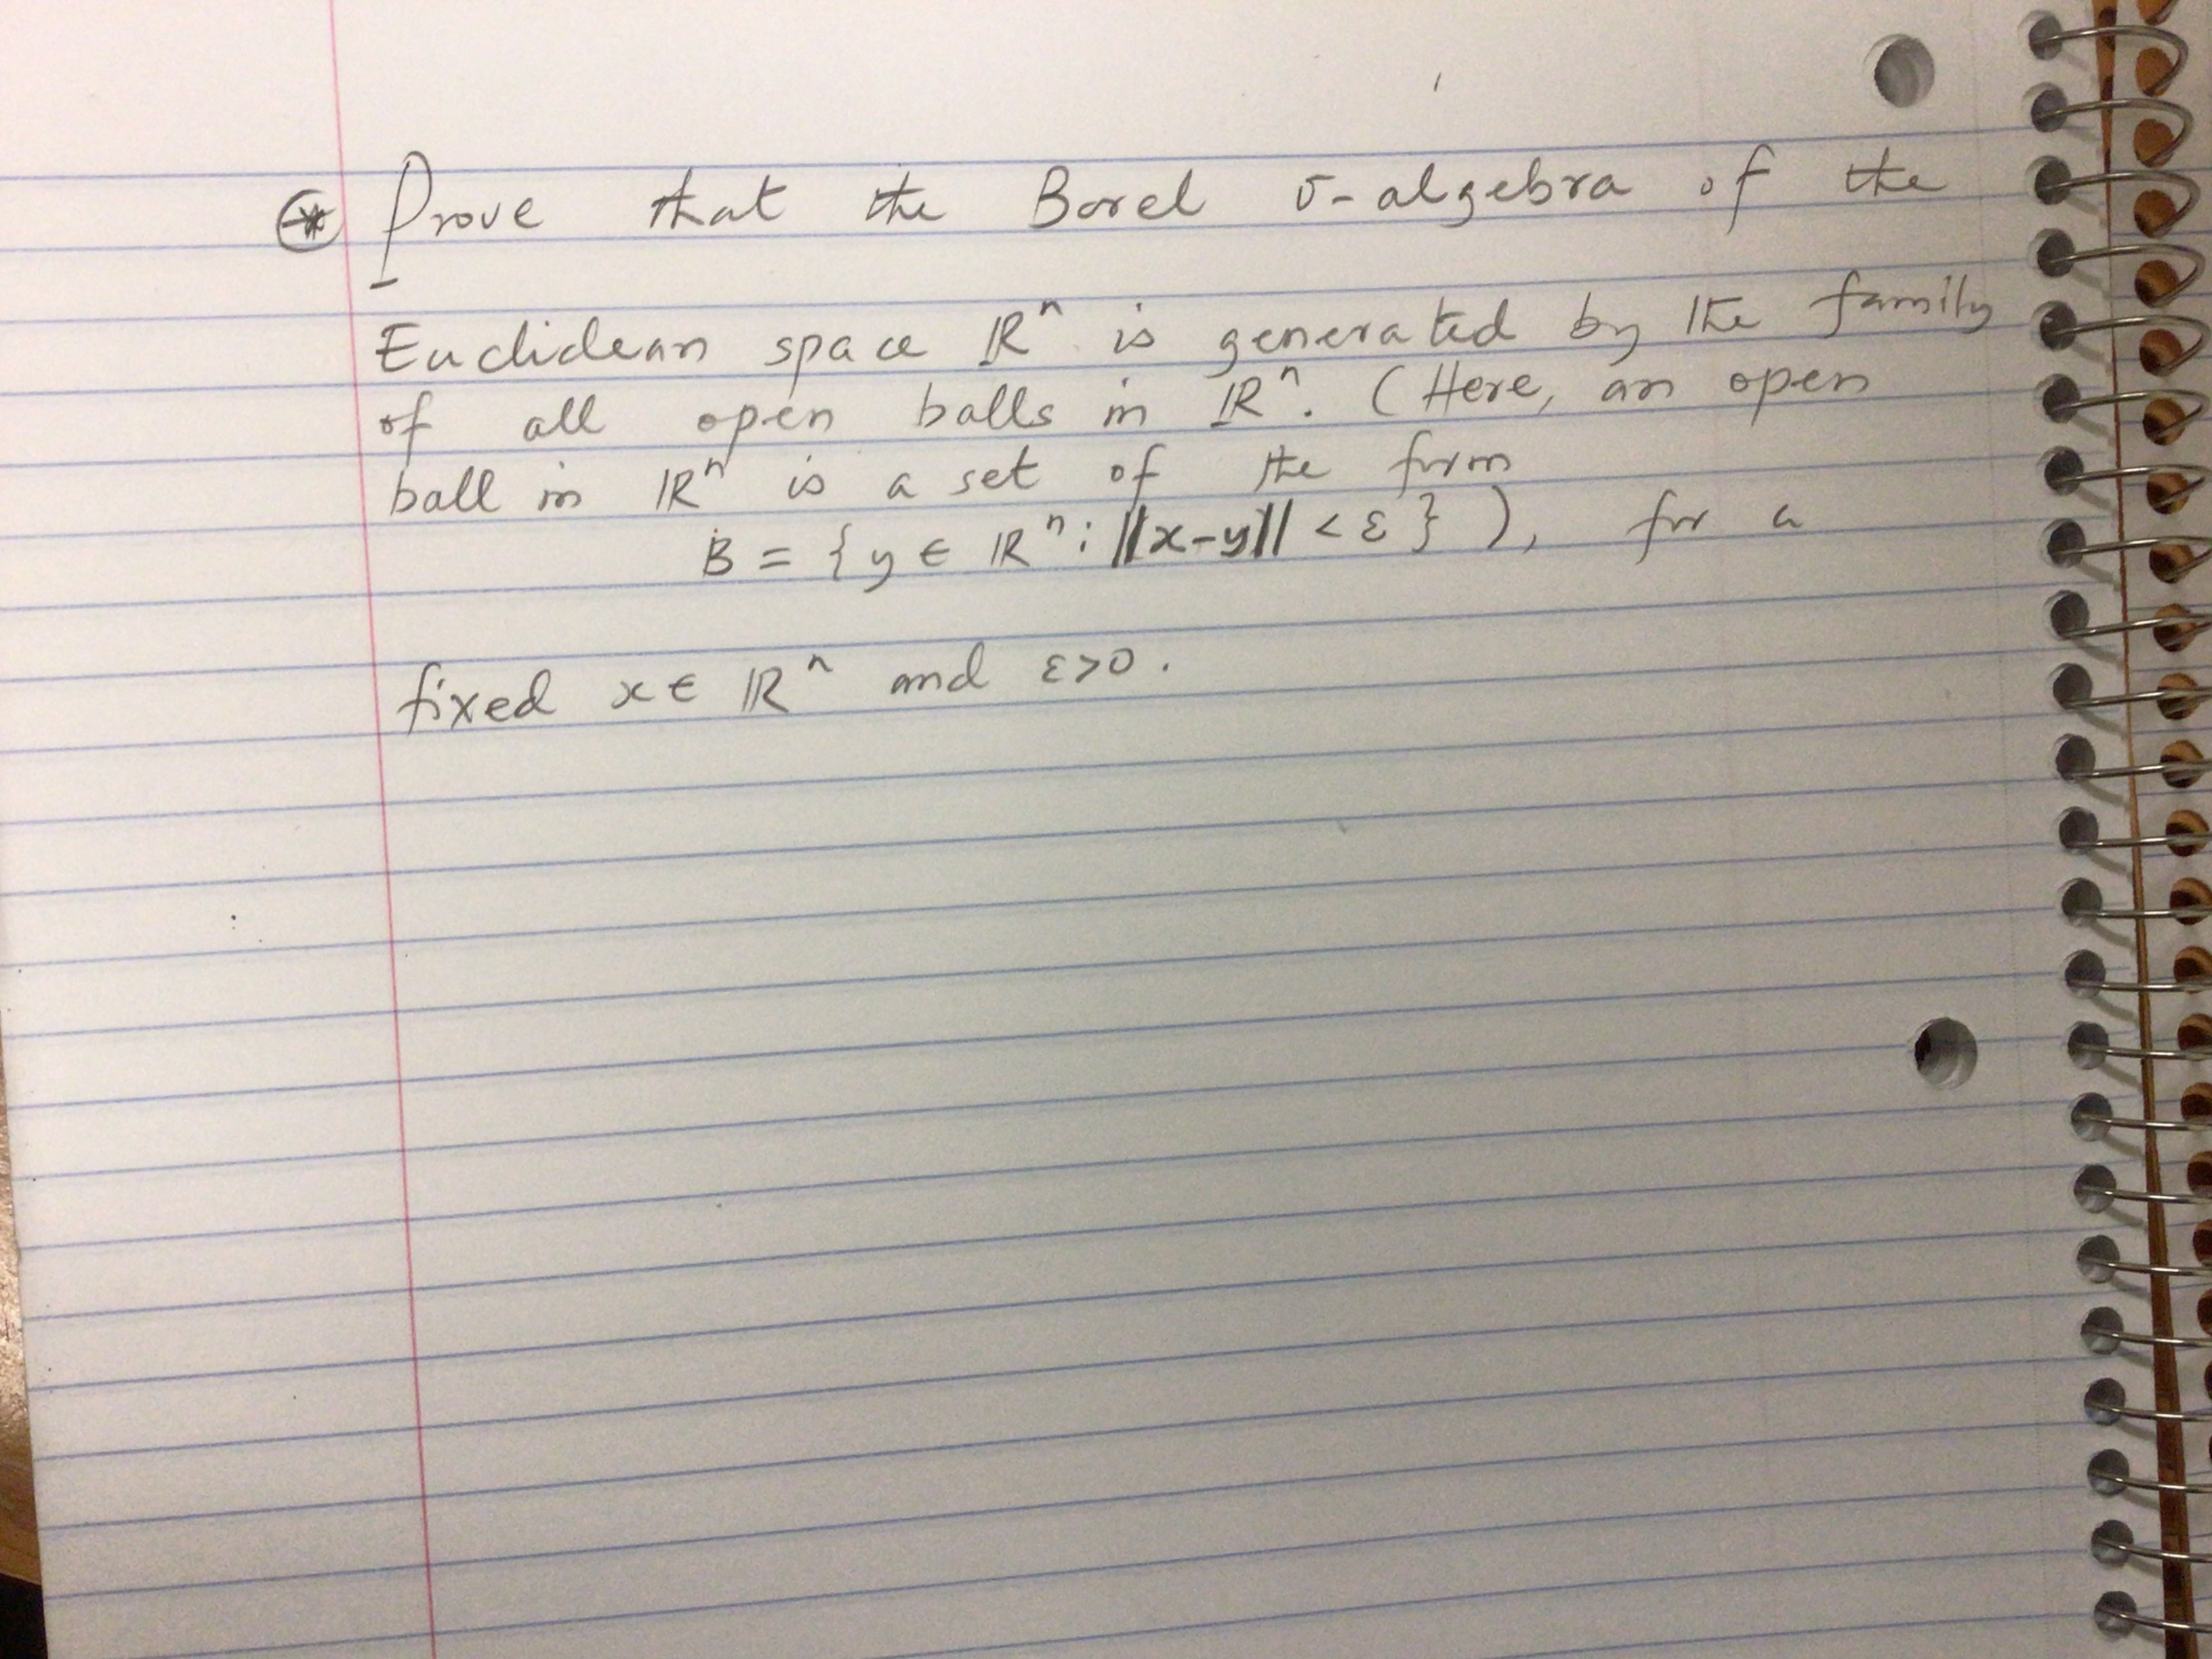 ⊛ Prove that the Borel σ-algebra of the
Euclidean space ℝⁿ is generated by the family
of all open balls in ℝⁿ. (Here, an open
ball in ℝⁿ is a set of the form
B = {y ∈ ℝⁿ : ||x-y|| < ε } ), for a
fixed x ∈ ℝⁿ and ε>0.